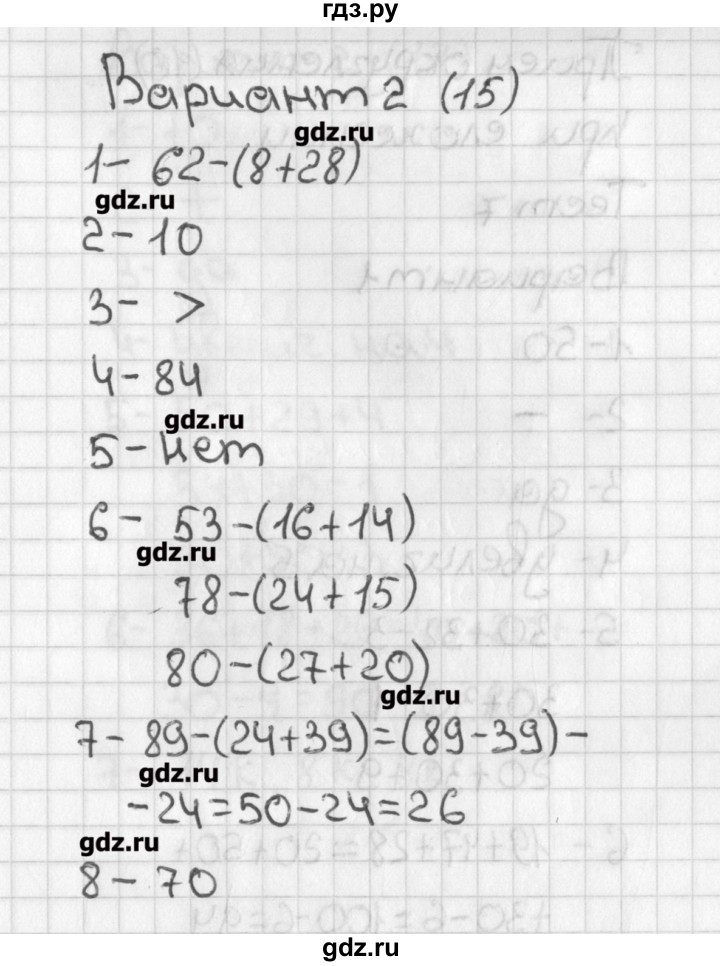 гдз.ру
Вариант 2 (15)
gdz.ru
1- 62-(8+28)
gdz.ru
2-10
3- >
4-84
gdz.ru
5-нет
6- 53-(16+14)
gdz.ru
78-(24+15)
80-(27+20)
gdz.ru
7- 89-(24+39)=(89-39)-
gdz.ru
-24=50-24=26
gdz.ru
8-70
gdz.ru